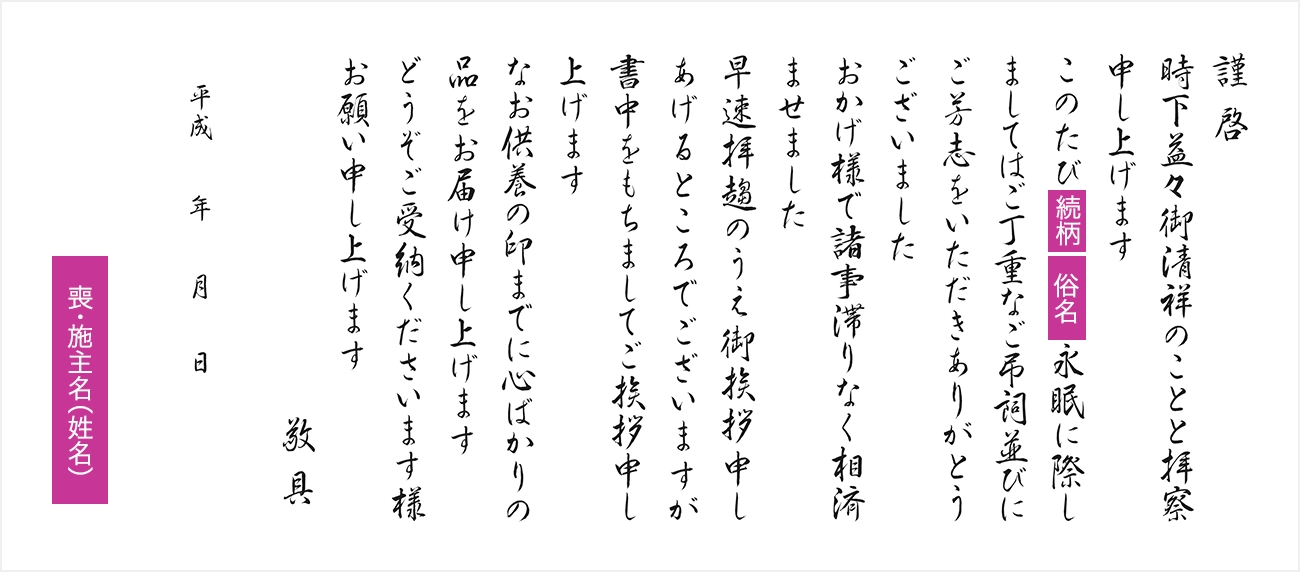 謹啓
時下益々御清祥のことと拝察
申し上げます
このたび 続柄 俗名 永眠に際し
ましてはご丁重なご弔詞並びに
ご芳志をいただきありがとう
ございました
おかげ様で諸事滞りなく相済
ませました
早速拝趨のうえ御挨拶申し
あげるところでございますが
書中をもちましてご挨拶申し
上げます
なお供養の印までに心ばかりの
品をお届け申し上げます
どうぞご受納くださいます様
お願い申し上げます
敬具
平成 年 月 日
喪・施主名(姓名)